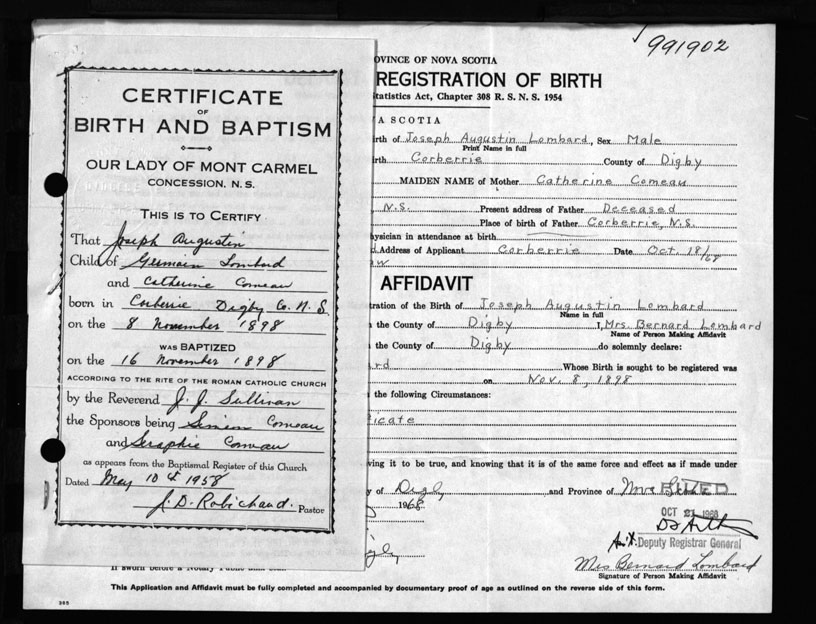 991902
CERTIFICATE
OF
BIRTH AND BAPTISM
OUR LADY OF MONT CARMEL
CONCESSION, N. S.
THIS IS TO CERTIFY
That Joseph Augustin
Child of Germain Lombard
and Catherine Comeau
born in Corberrie Digby Co. N.S.
on the 8 November 1898
WAS BAPTIZED
on the 16 November 1898
ACCORDING TO THE RITE OF THE ROMAN CATHOLIC CHURCH
by the Reverend J. J. Sullivan
the Sponsors being Simeon Comeau
and Seraphie Comeau
as appears from the Baptismal Register of this Church
Dated May 10 1958
J. D. Robichaud. Pastor
OVINCE OF NOVA SCOTIA
REGISTRATION OF BIRTH
tatistics Act, Chapter 308 R. S. N. S. 1954
A SCOTIA
irth of Joseph Augustin Lombard, Sex Male
Print Name in full
irth Corberrie County of Digby
MAIDEN NAME of Mother Catherine Comeau
N.S. Present address of Father Deceased
Place of birth of Father Corberrie, N.S.
hysician in attendance at birth
d Address of Applicant Corberrie Date Oct. 18/68
aw
AFFIDAVIT
tration of the Birth of Joseph Augustin Lombard
Name in full
n the County of Digby I, Mrs. Bernard Lombard
Name of Person Making Affidavit
n the County of Digby do solemnly declare:
ard Whose Birth is sought to be registered was
on Nov. 8, 1898
d the following Circumstances:
icate
ving it to be true, and knowing that it is of the same force and effect as if made under
y of Digby and Province of Nova Scotia
1968
OCT 1968
Deputy Registrar General
Mrs Bernard Lombard
Signature of Person Making Affidavit
If sworn before a Notary Public
This Application and Affidavit must be fully completed and accompanied by documentary proof of age as outlined on the reverse side of this form.